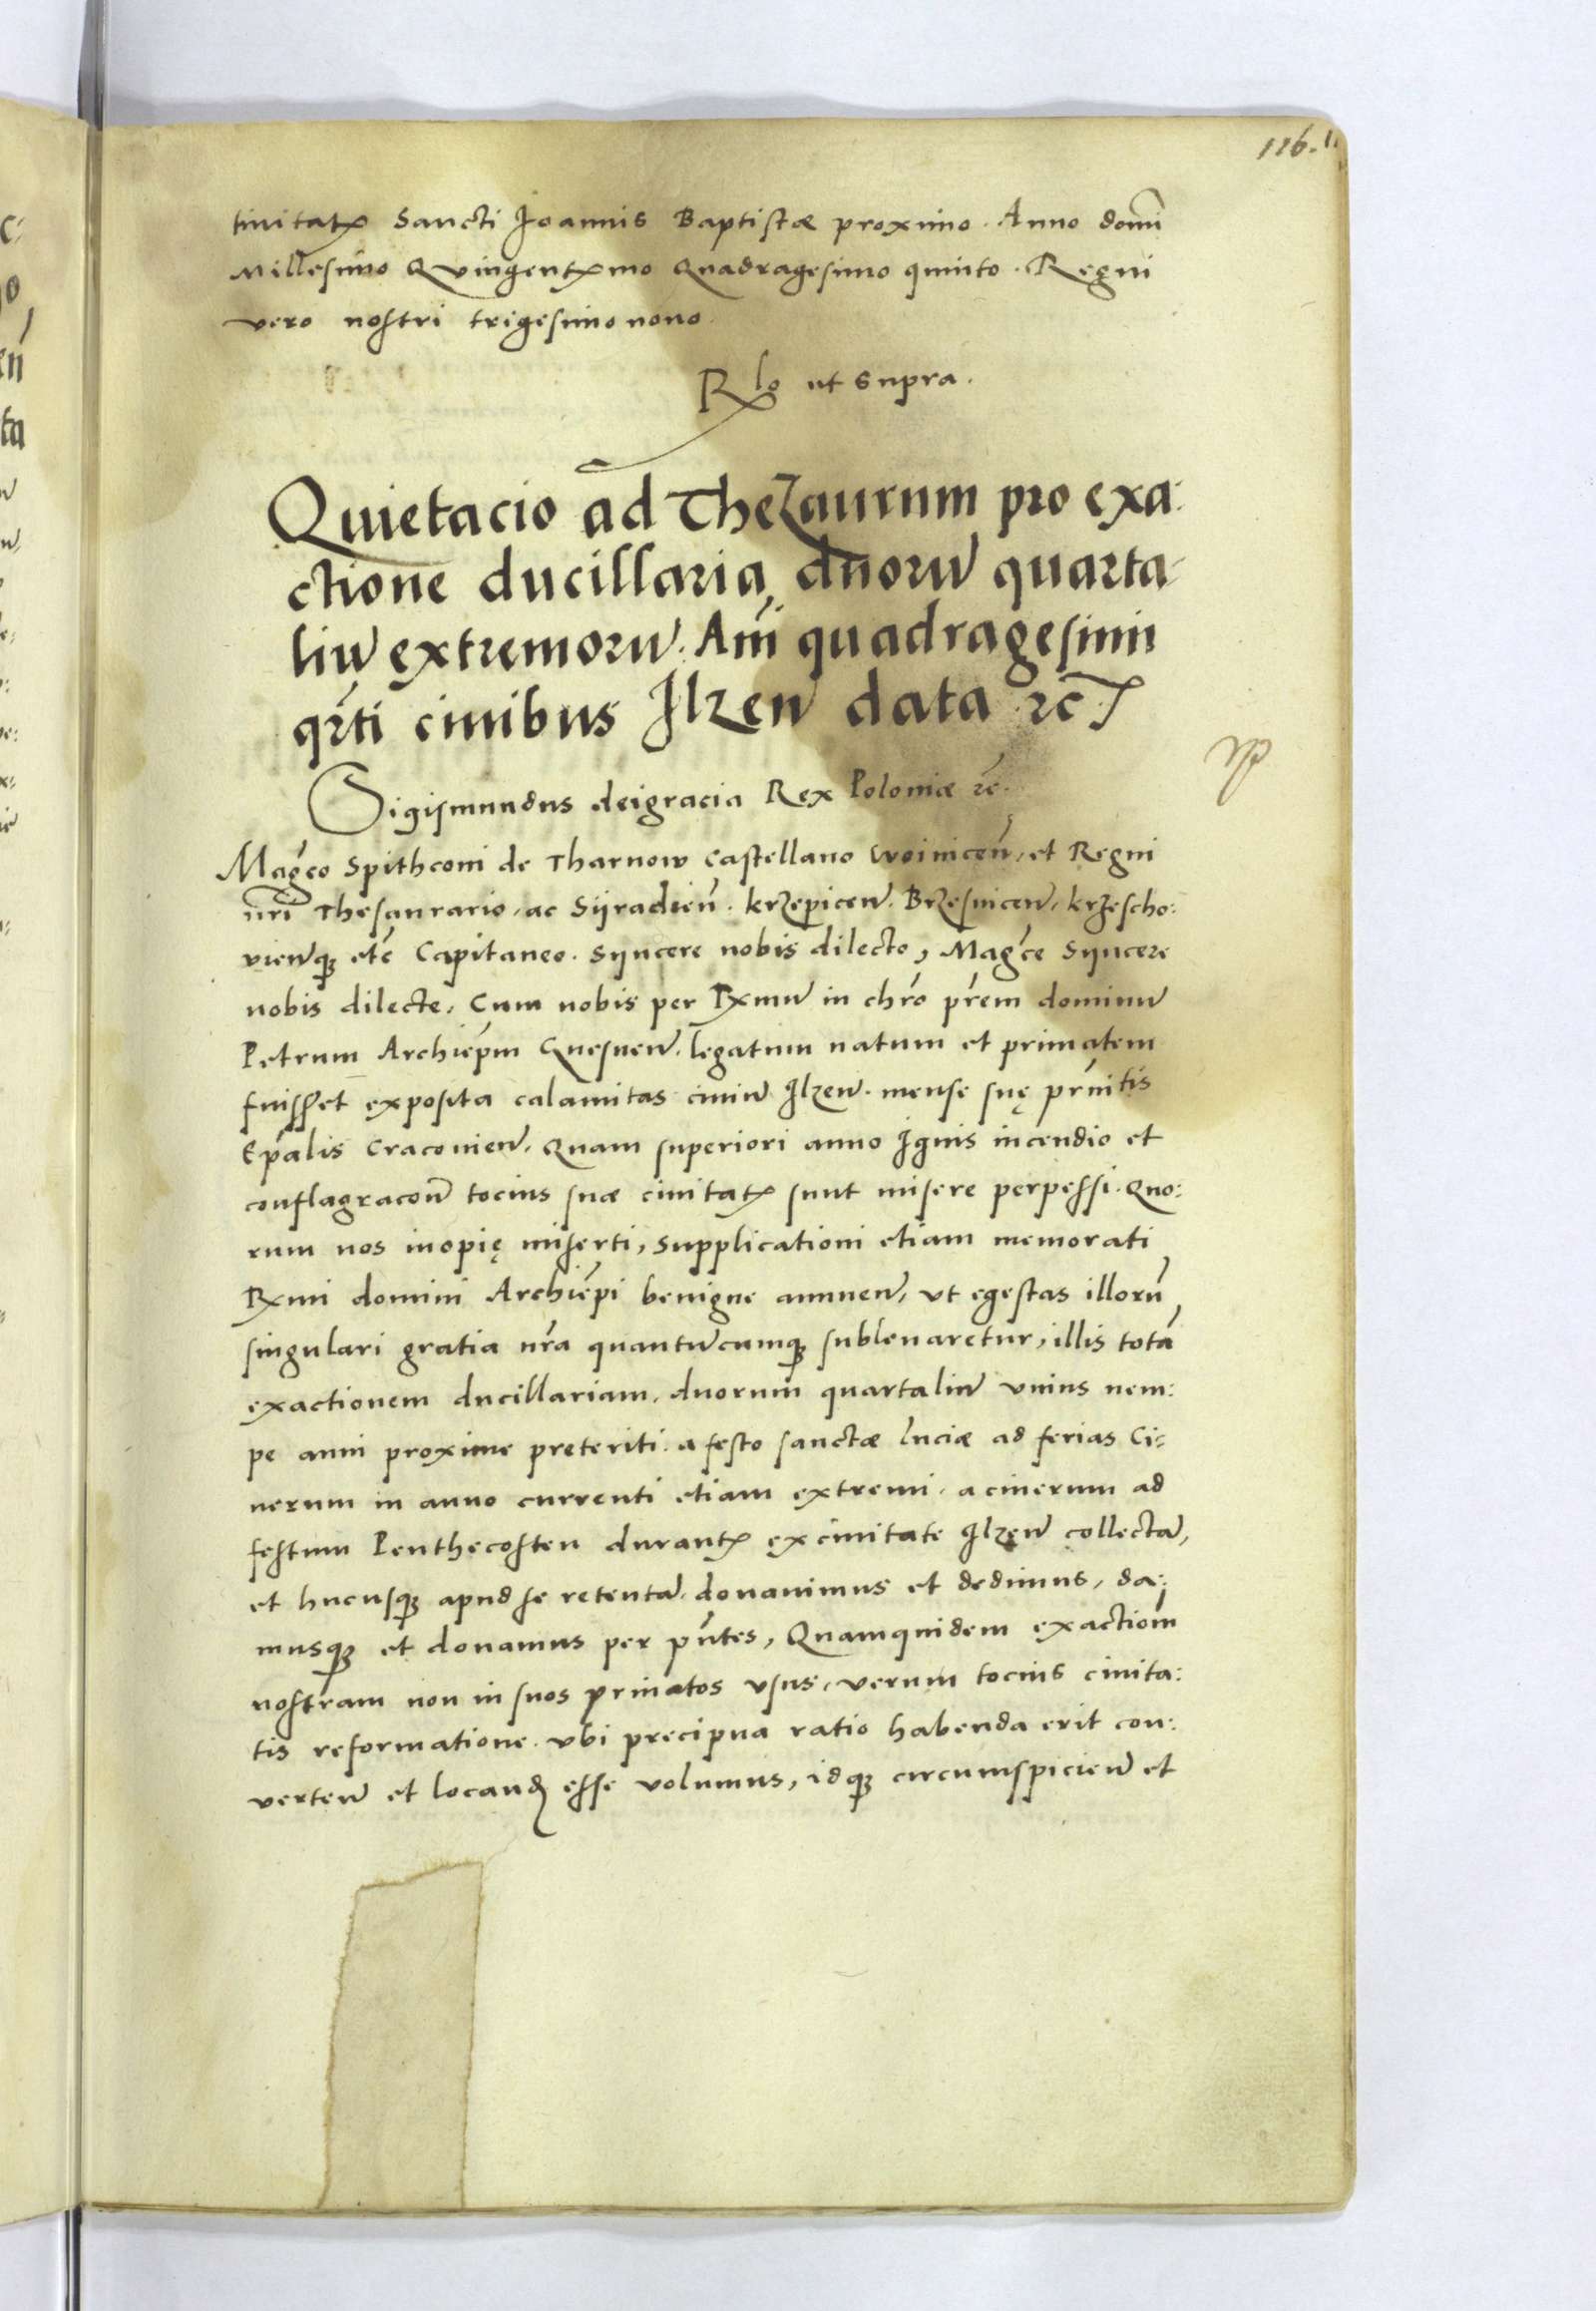 116.
tiuitatꝭ Sancti Joannis Baptistæ proximo. Anno domĩ
Millesimo Quingentꝭmo Quadragesimo quinto. Regni
vero nostri trigesimo nono.
Rlo ut supra.
Quietacio ad Thezaurum pro exa:
ctione ducillaria duorũ quarta:
liũ extremorũ. Anĩ quadragesimi
qrti ciuibus Ilzeñ data ꝛc̃
Sigismundus deigracia Rex Poloniæ ꝛc̃.
Magco Spithconi de Tharnow Castellano Woiniceñ, et Regni
nrĩ Thesaurario, ac Sijradieñ. krzepiceñ. Brzesniceñ, krzescho:
vieñqꝫ etc̃ Capitaneo. Sijncere nobis dilecto, Magce Sijncere
nobis dilecte, Cum nobis per Rxmũ in chro prem dominũ
Petrum Archiepm Gnesneñ. legatum natum et primatem
fuisset exposita calamitas ciuiũ Ilzeñ. mense suę prnitis
Epalis Cracouieñ. Quam superiori anno Ignis incendio et
conflagracoñ tocius suæ ciuitatꝭ sunt misere perpessi. Quo:
rum nos inopię miserti, supplicationi etiam memorati
Rxmi domini Archiepi benigne annueñ, vt egestas illorũ
singulari gratia nra quantũcumqꝫ subleuaretur, illis totã
exactionem ducillariam, duorum quartaliũ vnius nem:
pe anni proxime preteriti. a festo sanctæ Luciæ ad ferias Ci:
nerum in anno currenti etiam extremi. a cinerum ad
festum Penthecosten durantꝭ ex ciuitate Ilzeñ collectã,
et hucusqꝫ apud se retentã donauimus et dedimus, da:
musqꝫ et donamus per pñtes, Quamquidem exactiom̃
nostram non in suos priuatos vsus, verum tocius ciuita:
tis reformatione. vbi precipua ratio habenda erit con:
verteñ et locanđ esse volumus, idqꝫ circumspicieñ et